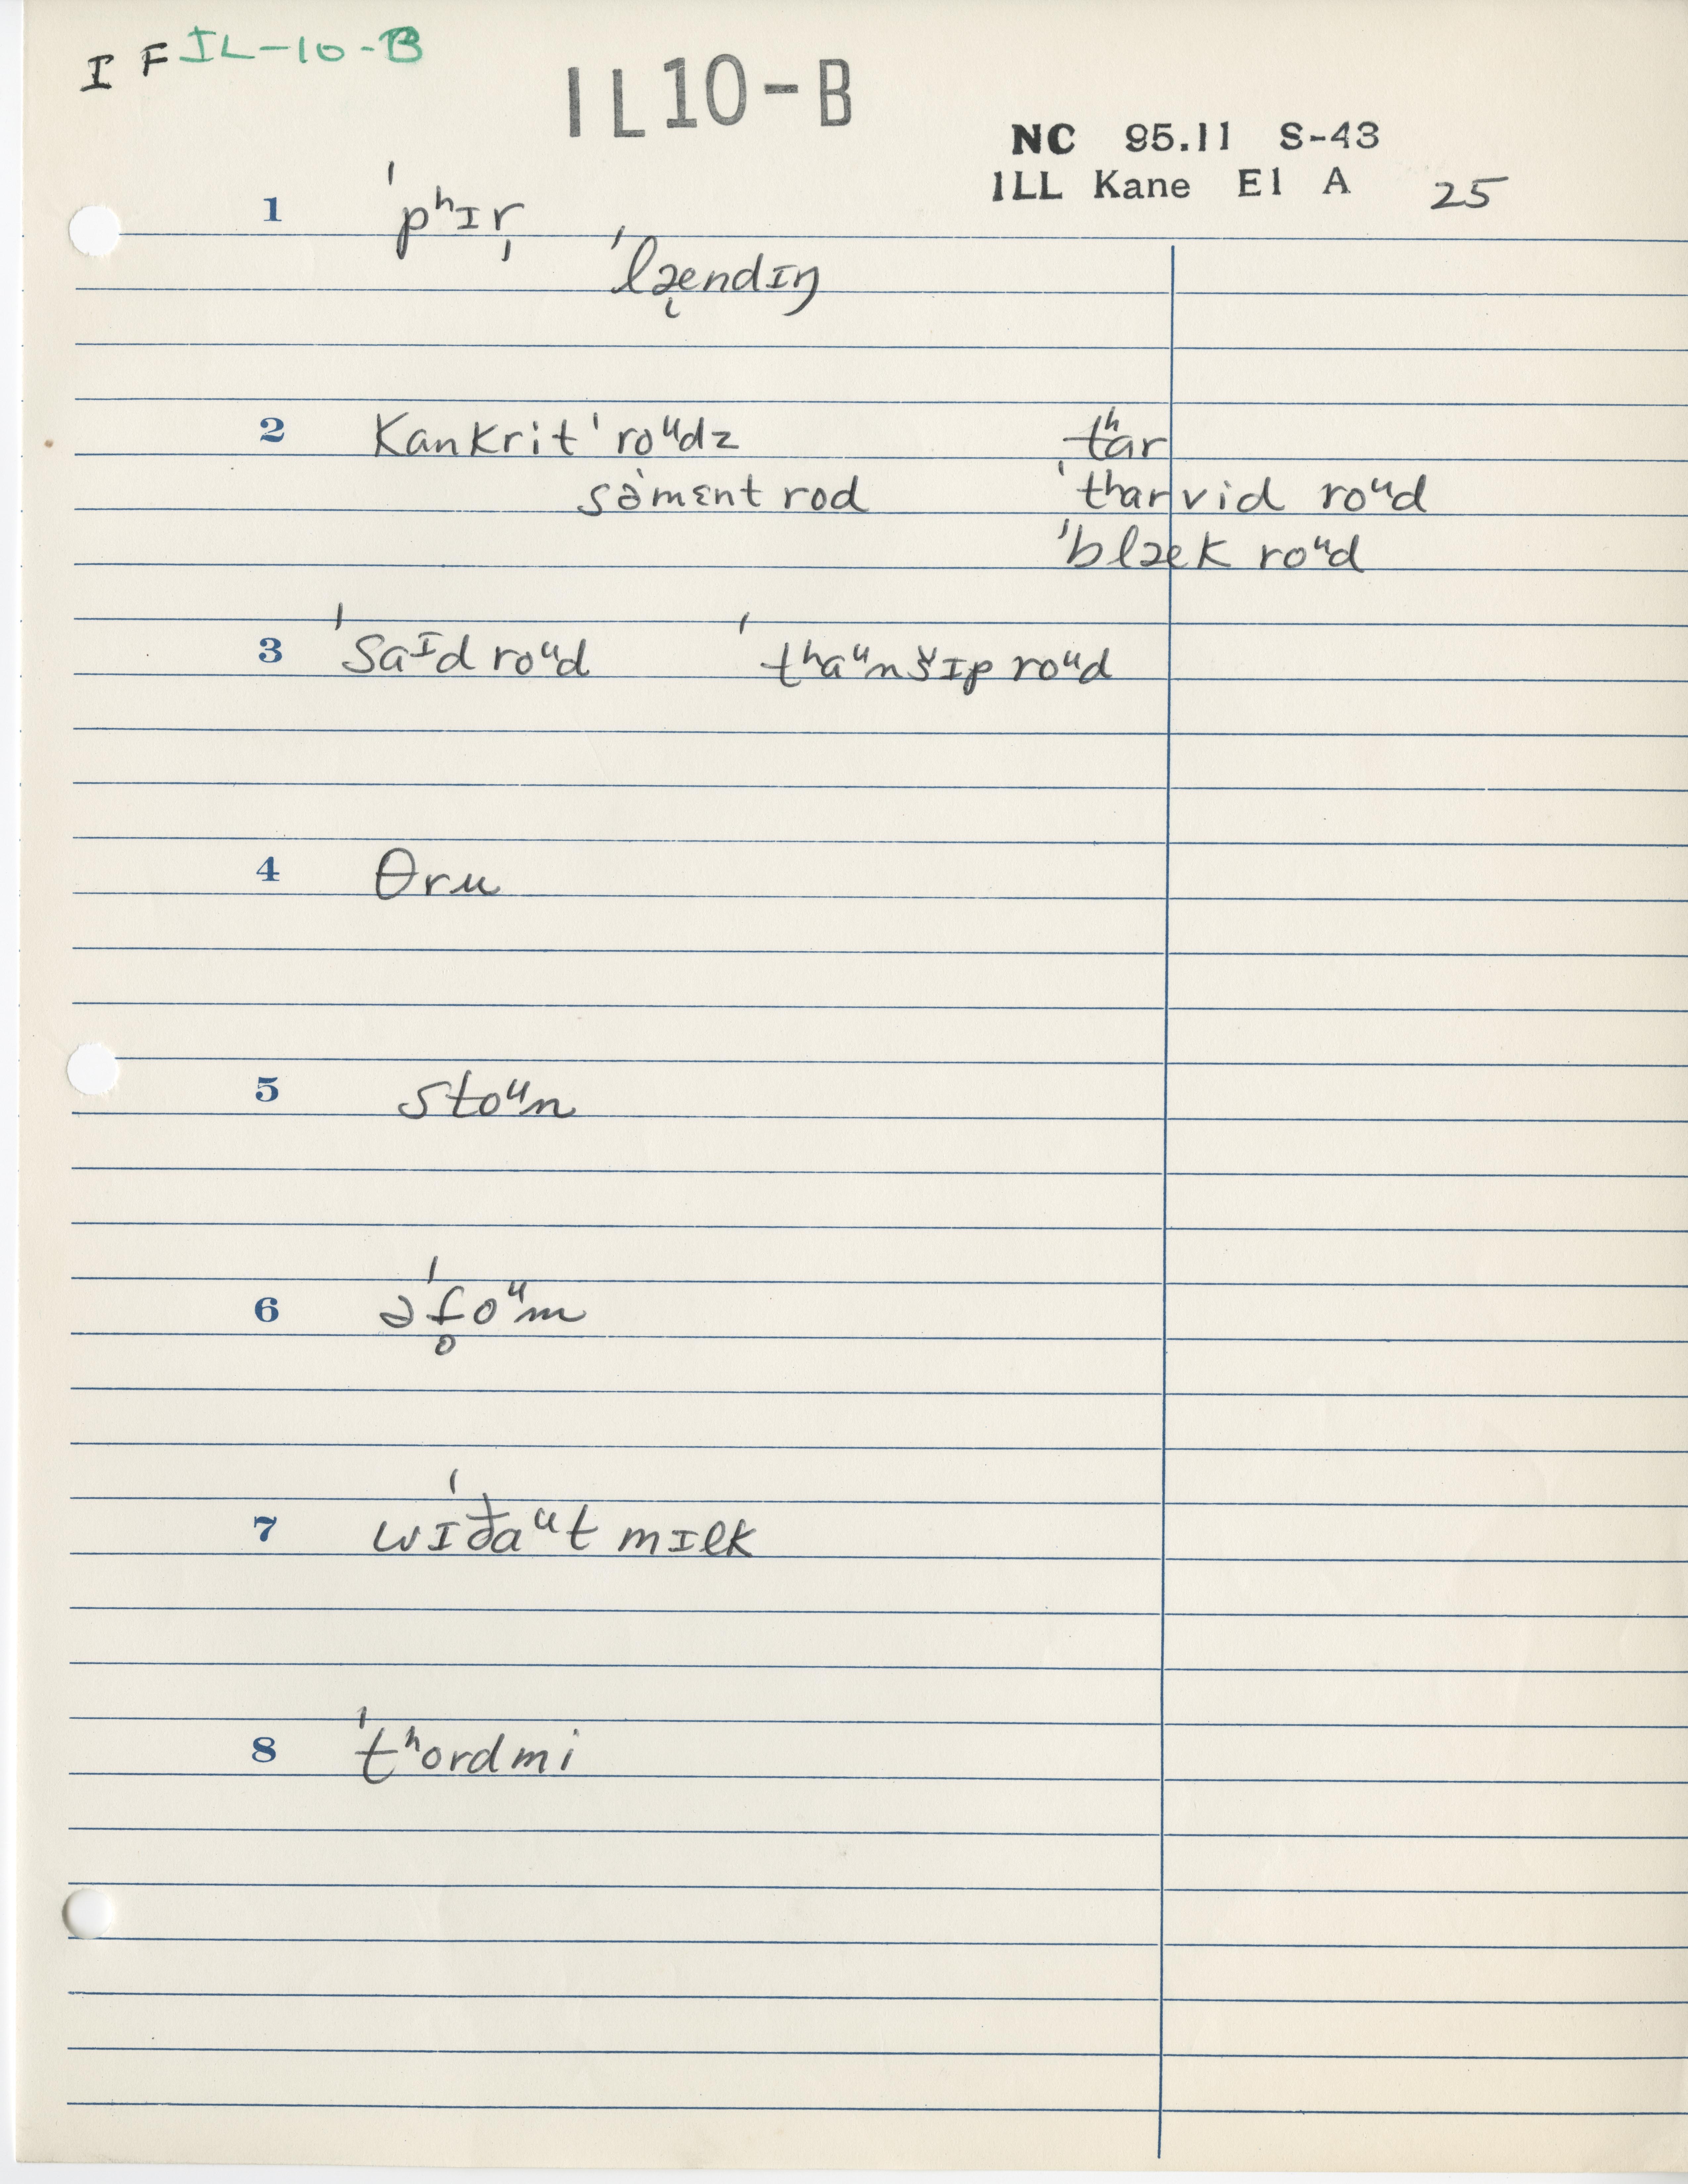 I F IL-10-B
IL10-B
NC 95.11 S-43
ILL Kane El A 25
1 ˈpʰɪr̩
ˈlæ̨ndɪŋ
2 Kankrit ˈroᵘdz tʰar
səˈmɛnt rod ˈtʰarvid roᵘd
ˈblæk roᵘd
3 ˈsaᶦd roᵘd ˈtʰaᵘnšɪp roᵘd
4 θru
5 stoᵘn
6 əˈf̥oᵘm
7 wɪˈđaᵘt mɪlk
8 ˈtʰord mi